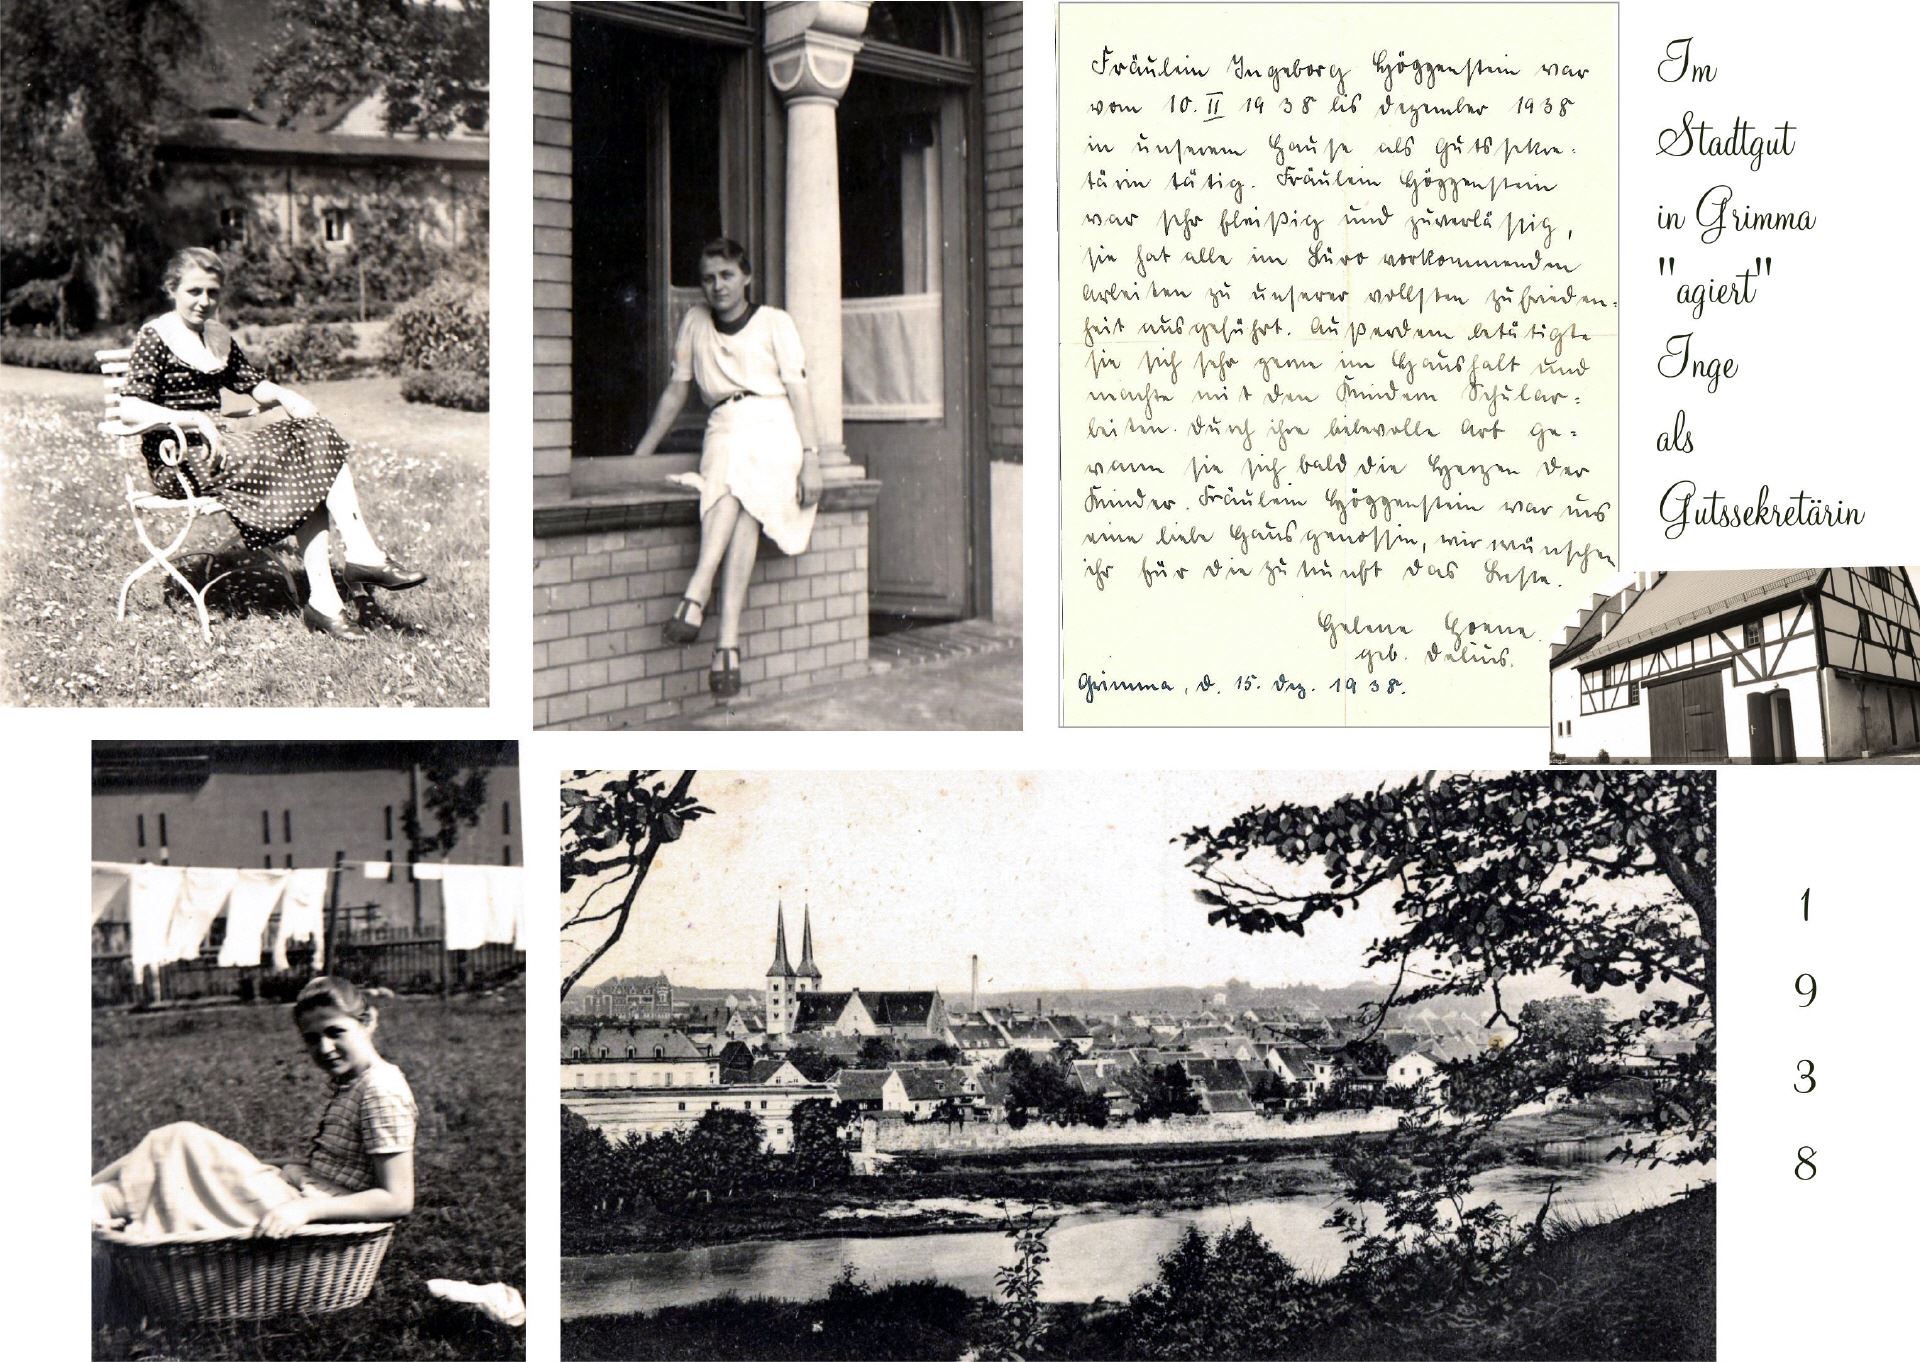 Fräulein Ingeborg Höggenstein war
vom 10. II 1938 bis Dezember 1938
in unserem Hause als Gutssekre-
tärin tätig. Fräulein Höggenstein
war sehr fleißig und zuverlässig,
sie hat alle im Büro vorkommenden
Arbeiten zu unserer vollsten Zufrieden-
heit ausgeführt. Außerdem betätigte
sie sich sehr gerne im Haushalt und
machte mit den Kindern Schular-
beiten. Durch ihre liebevolle Art ge-
wann sie sich bald die Herzen der
Kinder. Fräulein Höggenstein war uns
eine liebe Hausgenossin, wir wünschen
ihr für die Zukunft das Beste.
Helene
geb. Delius.
Grimma, d. 15. Dez. 1938.
Im
Stadtgut
in Grimma
"agiert"
Inge
als
Gutssekretärin
1
9
3
8